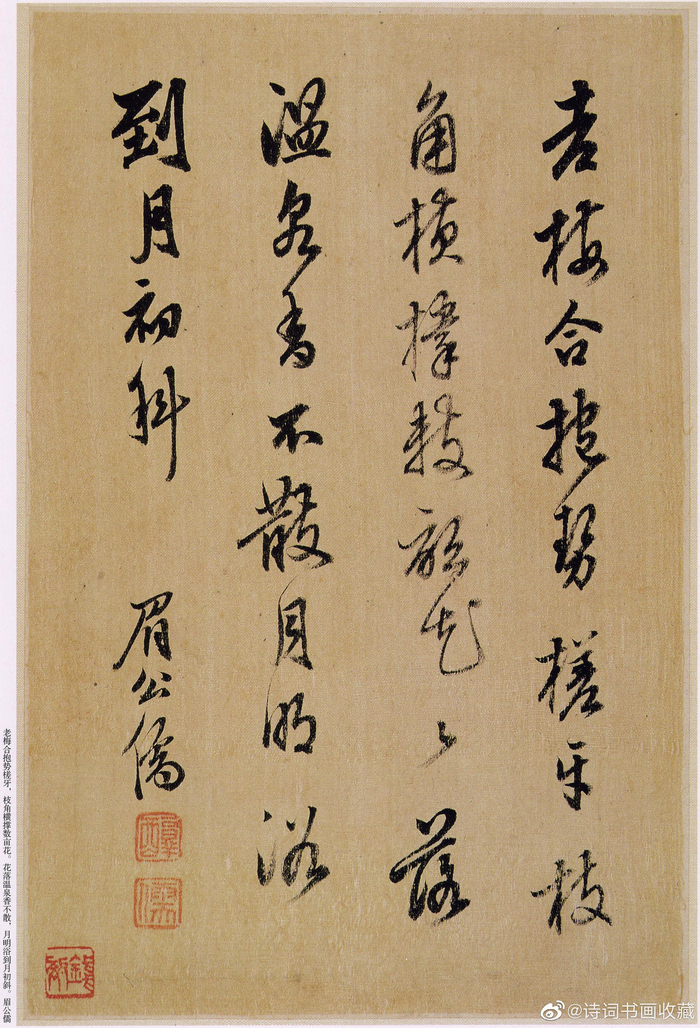 老梅合抱势槎牙枝
角横撑数亩花々落
温泉香不散月明浴
到月初斜
眉公儒
老梅合抱势槎牙，枝角横撑数亩花。花落温泉香不散，月明浴到月初斜。眉公儒
@诗词书画收藏